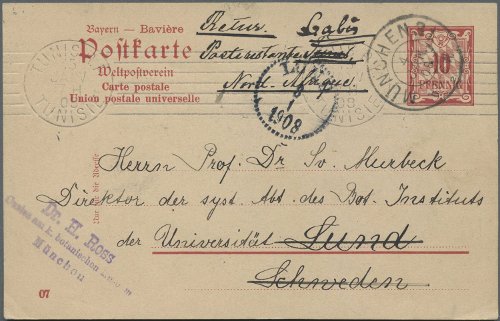 Bayern – Bavière
Postkarte
Weltpostverein
Carte postale
Union postale universelle
Retur.
Poste restante
Nord-
MÜNCHEN 2
10
PFENNIG
TUNIS
1908
Nur für die Adresse
Herrn Prof. Dr Sv. Murbeck
Direktor der syst. Abt. des Bot. Instituts
der Universität Lund
Schweden
Dr. H. Ross
Custos am k. botanischen
München
07